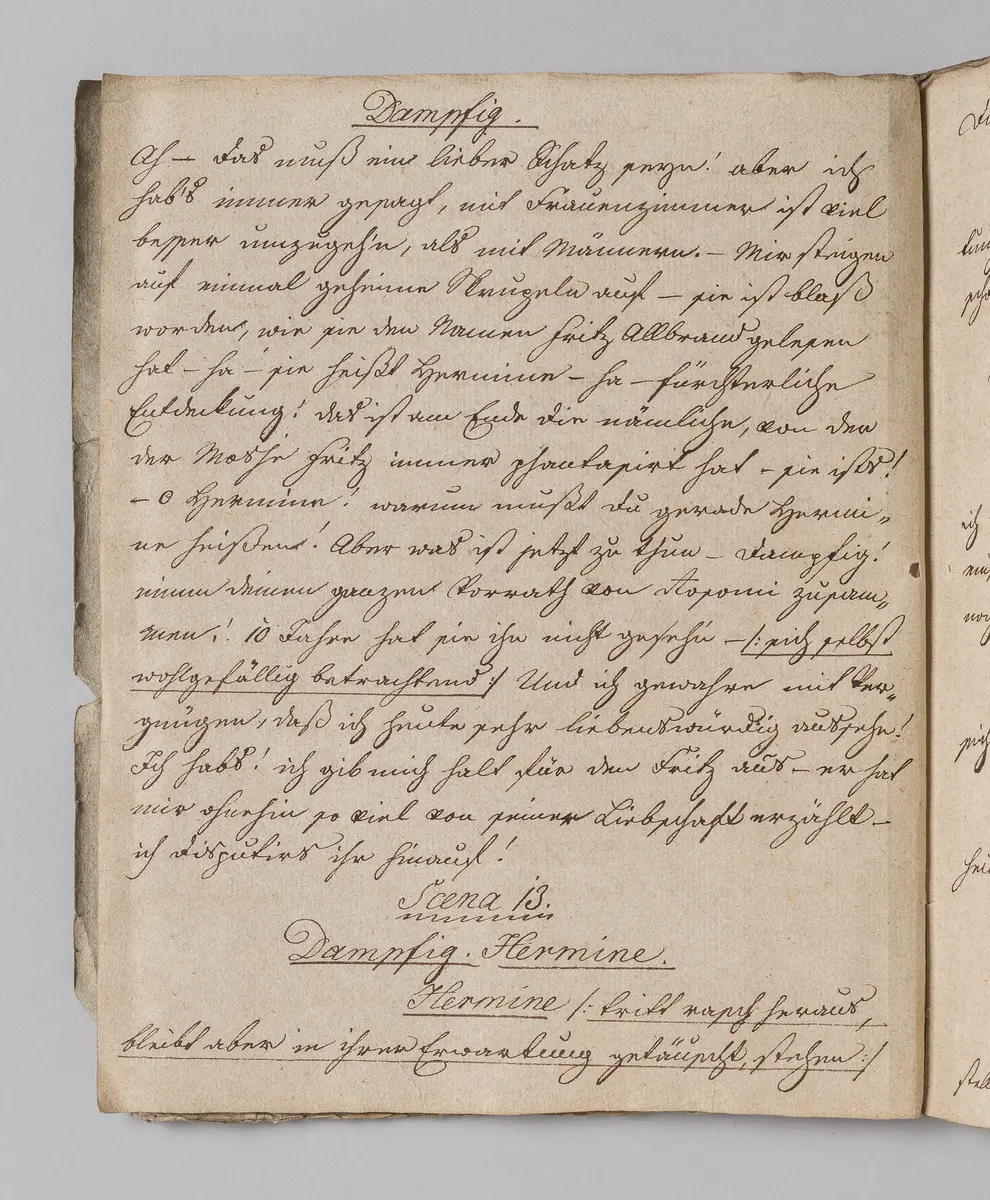 Dampfig.
Ah — das muß ein lieber Schatz seyn! aber ich
hab's immer gesagt, mit Frauenzimmer ist viel
besser umzugeh'n, als mit Männern. — Mir steigen
auf einmal geheime Skrupeln auf — sie ist blaß
worden, wie sie den Namen Fritz Allbrand gelesen
hat — ha — sie heißt Hermine — ha — fürchterliche
Entdeckung! das ist am Ende die nämliche, von der
der Mosje Fritz immer phantasirt hat — sie ists!
— o Hermine! warum mußt du gerade Hermi„
ne heißen! Aber was ist jetzt zu thun — Dampfig!
nimm deinen ganzen Vorrath von zusam„
men! 10 Jahre hat sie ihn nicht geseh'n — /: sich selbst
wohlgefällig betrachtend :/ Und ich gewahre mit Ver„
gnügen, daß ich heute sehr liebenswürdig ausseh'!
Ich habs! ich gib mich halt für den Fritz aus — er hat
mir ohnehin so viel von seiner Liebschaft erzählt —
ich disputirs ihr hinauf!
Scena 13.
Dampfig. Hermine.
Hermine /: tritt rasch heraus,
bleibt aber in ihrer Erwartung getäuscht, stehen :/